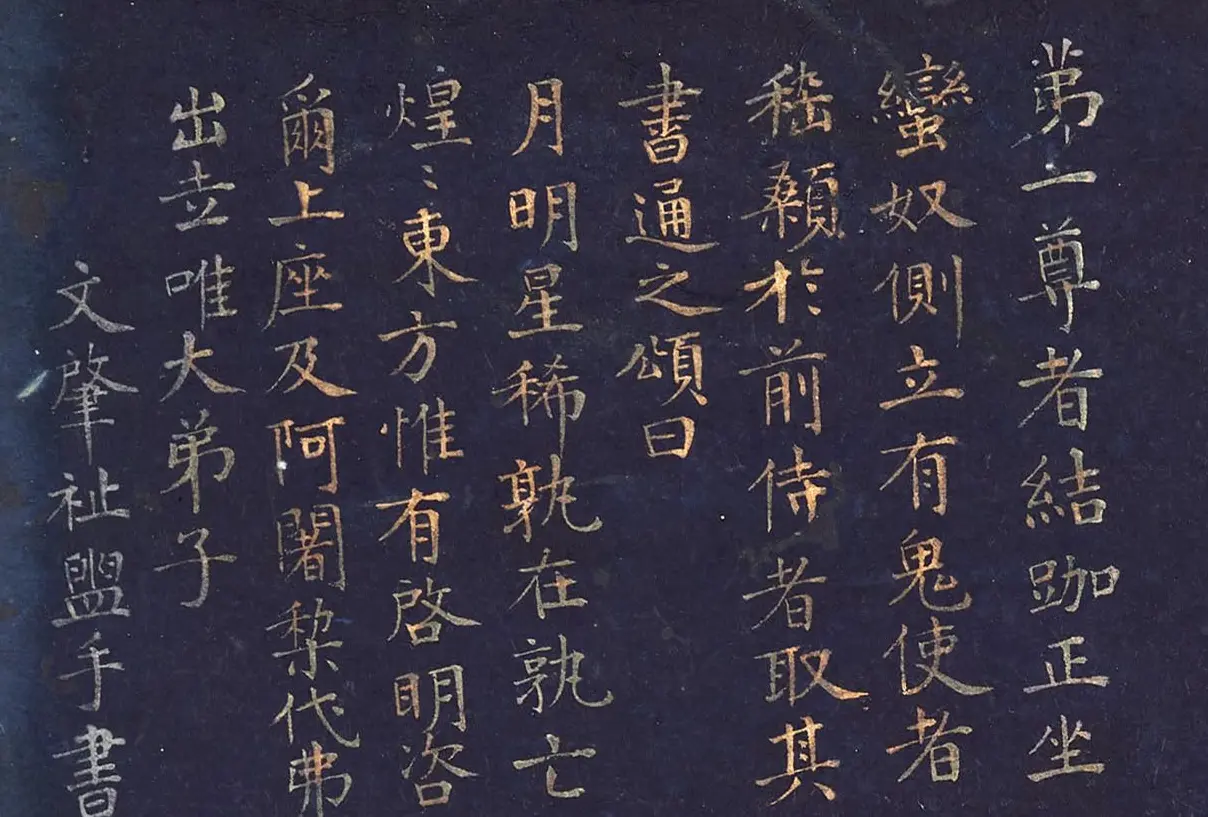 苐一尊者結跏正坐
蠻奴側立有鬼使者
嵇顙於前侍者取其
書通之頌曰
月明星稀孰在孰亡
煌〻東方惟有啓明咨
爾上座及阿闍棃代弗
出丗唯大弟子
文肇祉盥手書